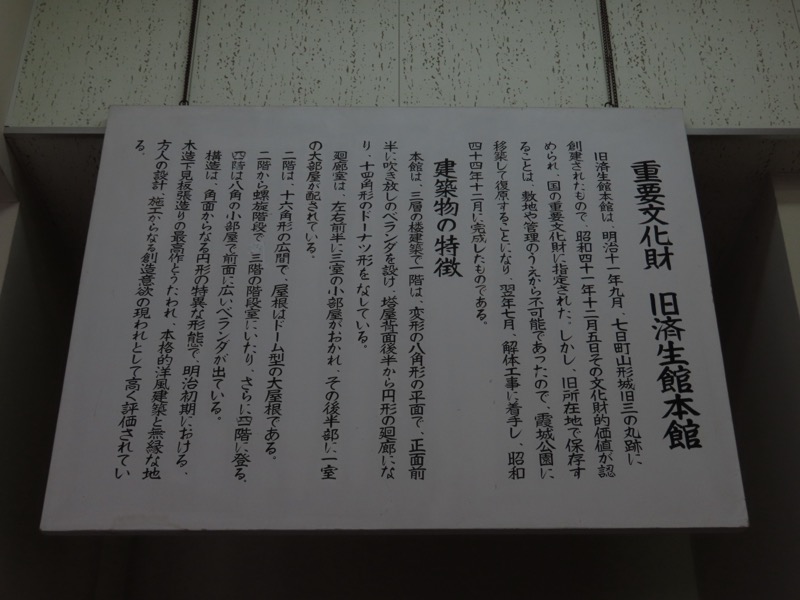 重要文化財 旧済生館本館
旧済生館本館は、明治十一年九月、七日町山形城旧三の丸跡に
創建されたもので、昭和四十一年十二月五日その文化財的価値が認
められ、国の重要文化財に指定された。しかし、旧所在地で保存す
ることは、敷地や管理のうえから不可能であったので、霞城公園に
移築して復原することになり、翌年七月、解体工事に着手し、昭和
四十四年十二月に完成したものである。
建築物の特徴
本館は、三層の楼建築で一階は、変形の八角形の平面で、正面前
半に吹き放しのベランダを設け、塔屋背面後半から円形の廻廊にな
り、十四角形のドーナツ形をなしている。
廻廊室は、左右前半に三室の小部屋がおかれ、その後半部に一室
の大部屋が配されている。
二階は、十六角形の広間で、屋根はドーム型の大屋根である。
二階から螺旋階段で、三階の階段室にいたり、さらに四階に登る。
四階は八角の小部屋で前面に広いベランダが出ている。
構造は、角面からなる円形の特異な形態で、明治初期における、
木造下見板張造りの最高作とうたわれ、本格的洋風建築と無縁な地
方人の設計、施工からなる創造意欲の現われとして高く評価されてい
る。